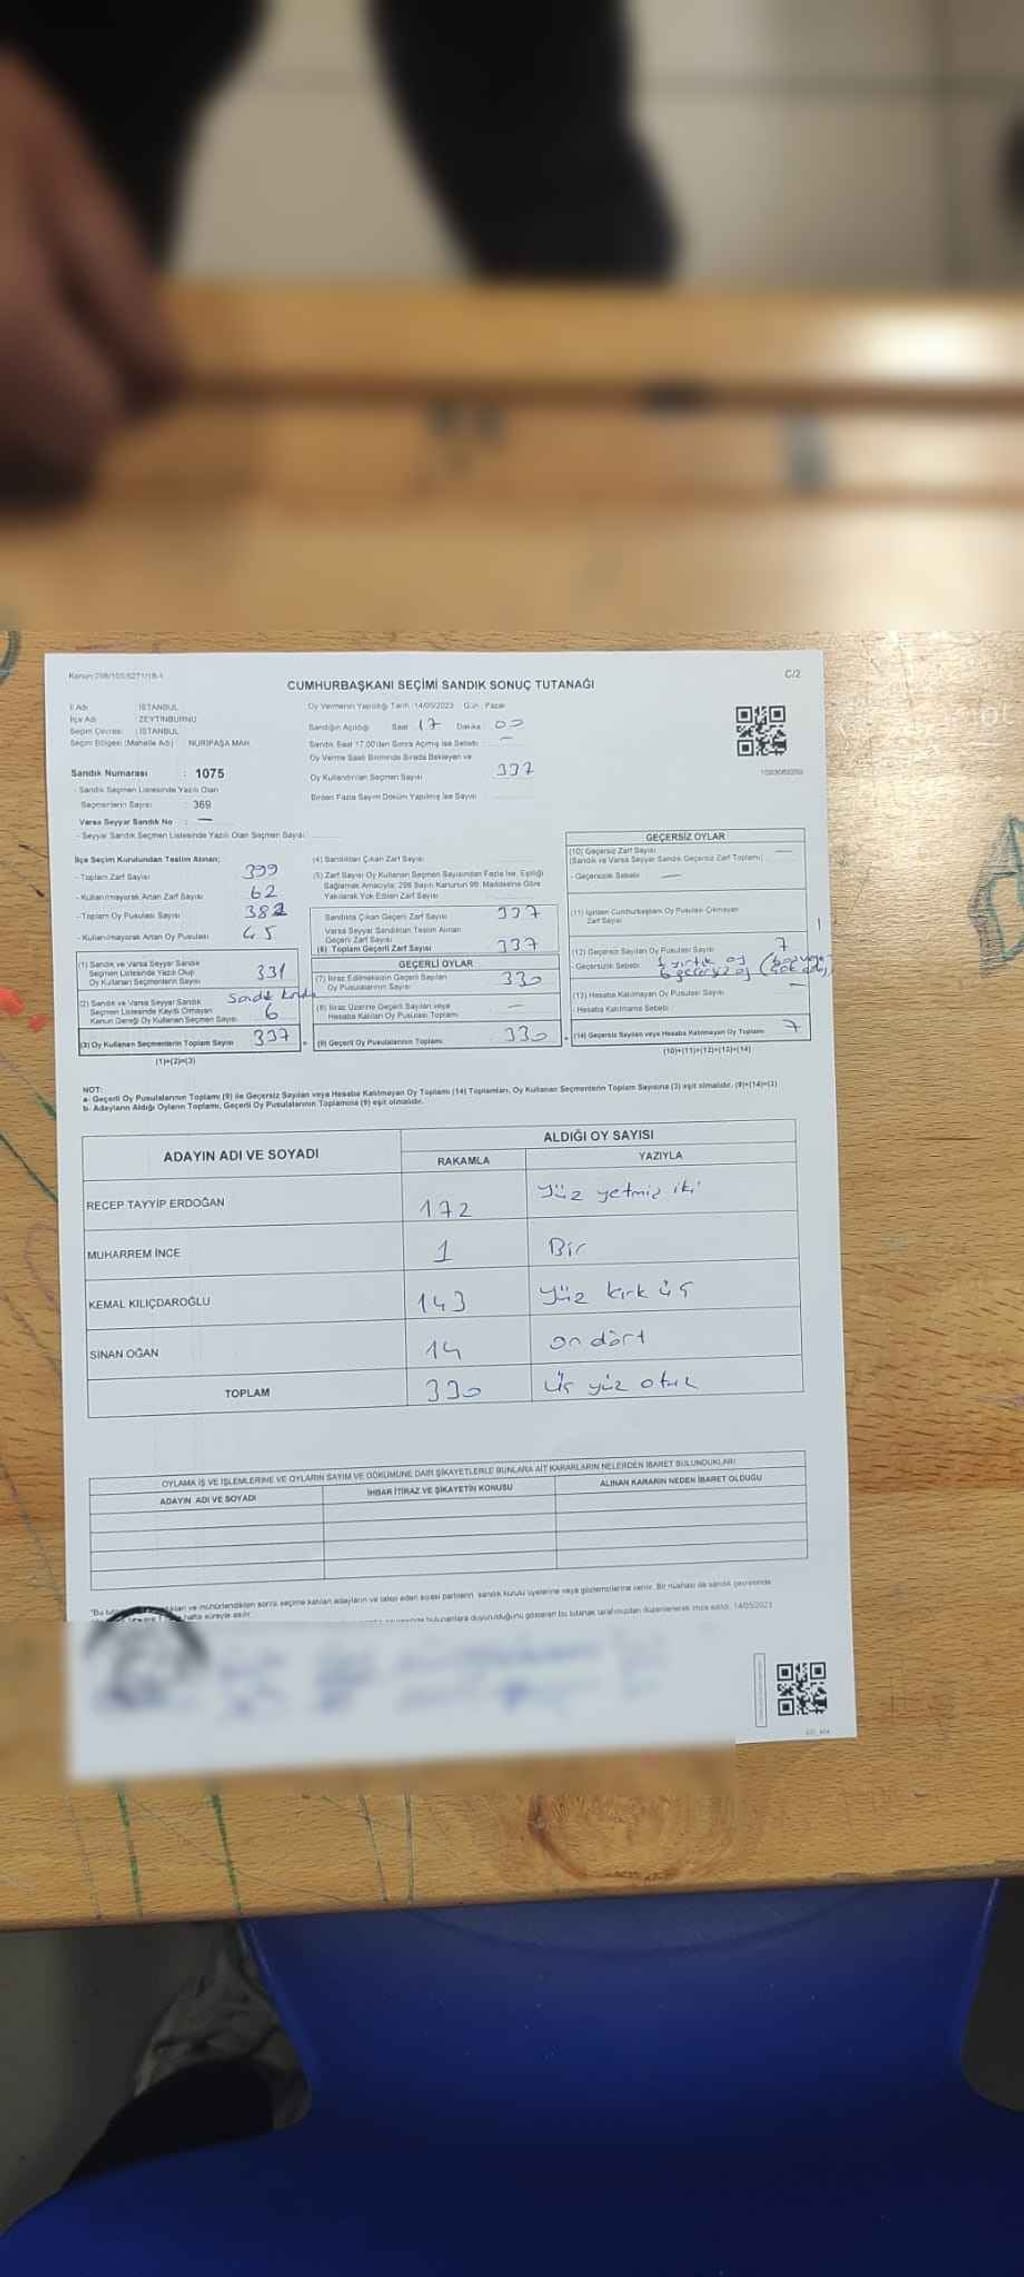 Kanun:298/105/5271/18-1
C/2
CUMHURBAŞKANI SEÇİMİ SANDIK SONUÇ TUTANAĞI
İl Adı : İSTANBUL
İlçe Adı : ZEYTİNBURNU
Seçim Çevresi : İSTANBUL
Seçim Bölgesi (Mahalle Adı) : NURİPAŞA MAH.
Sandık Numarası : 1075
- Sandık Seçmen Listesinde Yazılı Olan
Seçmenlerin Sayısı : 369
Varsa Seyyar Sandık No : —
- Seyyar Sandık Seçmen Listesinde Yazılı Olan Seçmen Sayısı
Oy Vermenin Yapıldığı Tarih :14/05/2023 Gün : Pazar
Sandığın Açıldığı Saat 17 Dakika : 00
Sandık Saat 17.00'den Sonra Açılmış İse Sebebi : —
Oy Verme Saati Bitiminde Sırada Bekleyen ve
Oy Kullandırılan Seçmen Sayısı 337
Birden Fazla Sayım Döküm Yapılmış İse Sayısı
İlçe Seçim Kurulundan Teslim Alınan;
- Toplam Zarf Sayısı 399
- Kullanılmayarak Artan Zarf Sayısı 62
- Toplam Oy Pusulası Sayısı 382
- Kullanılmayarak Artan Oy Pusulası 45
(1) Sandık ve Varsa Seyyar Sandık
Seçmen Listesinde Yazılı Olup
Oy Kullanan Seçmenlerin Sayısı 331
(2) Sandık ve Varsa Seyyar Sandık
Seçmen Listesinde Kayıtlı Olmayan
Kanun Gereği Oy Kullanan Seçmen Sayısı 6
(3) Oy Kullanan Seçmenlerin Toplam Sayısı 337
(1)+(2)=(3)
(4) Sandıktan Çıkan Zarf Sayısı
(5) Zarf Sayısı Oy Kullanan Seçmen Sayısından Fazla İse, Eşitliği
Sağlamak Amacıyla; 298 Sayılı Kanunun 98. Maddesine Göre
Yakılarak Yok Edilen Zarf Sayısı
Sandıkta Çıkan Geçerli Zarf Sayısı 337
Varsa Seyyar Sandıktan Teslim Alınan
Geçerli Zarf Sayısı
(6) Toplam Geçerli Zarf Sayısı 337
GEÇERLİ OYLAR
(7) İtiraz Edilmeksizin Geçerli Sayılan
Oy Pusulalarının Sayısı 330
(8) İtiraz Üzerine Geçerli Sayılan veya
Hesaba Katılan Oy Pusulası Toplamı —
(9) Geçerli Oy Pusulalarının Toplamı 330
GEÇERSİZ OYLAR
(10) Geçersiz Zarf Sayısı —
(Sandık ve Varsa Seyyar Sandık Geçersiz Zarf Toplamı)
- Geçersizlik Sebebi —
(11) İçinden Cumhurbaşkanı Oy Pusulası Çıkmayan
Zarf Sayısı
(12) Geçersiz Sayılan Oy Pusulası Sayısı 7
- Geçersizlik Sebebi 1 yırtık oy
6 geçersiz oy
(13) Hesaba Katılmayan Oy Pusulası Sayısı —
- Hesaba Katılmama Sebebi
(14) Geçersiz Sayılan veya Hesaba Katılmayan Oy Toplamı 7
(10)+(11)+(12)+(13)=(14)
NOT:
a- Geçerli Oy Pusulalarının Toplamı (9) ile Geçersiz Sayılan veya Hesaba Katılmayan Oy Toplamı (14) Toplamları, Oy Kullanan Seçmenlerin Toplam Sayısına (3) eşit olmalıdır. (9)+(14)=(3)
b- Adayların Aldığı Oyların Toplamı, Geçerli Oy Pusulalarının Toplamına (9) eşit olmalıdır.
ADAYIN ADI VE SOYADI
ALDIĞI OY SAYISI
RAKAMLA YAZIYLA
RECEP TAYYİP ERDOĞAN 172 Yüz yetmiş iki
MUHARREM İNCE 1 Bir
KEMAL KILIÇDAROĞLU 143 Yüz kırk üç
SİNAN OĞAN 14 on dört
TOPLAM 330 Üç yüz otuz
OYLAMA İŞ VE İŞLEMLERİNE VE OYLARIN SAYIM VE DÖKÜMÜNE DAİR ŞİKAYETLERLE BUNLARA AİT KARARLARIN NELERDEN İBARET BULUNDUKLARI
ADAYIN ADI VE SOYADI İHBAR İTİRAZ VE ŞİKAYETİN KONUSU ALINAN KARARIN NEDEN İBARET OLDUĞU
ve mühürlendikten sonra seçime katılan adayların ve talep eden siyasi partilerin sandık kurulu üyelerine veya gözlemcilerine verilir. Bir nüshası da sandık çevresinde
hafta süreyle asılır.
bulunanlara duyurulduğunu gösteren bu tutanak tarafımızdan düzenlenerek imza edildi. 14/05/2023